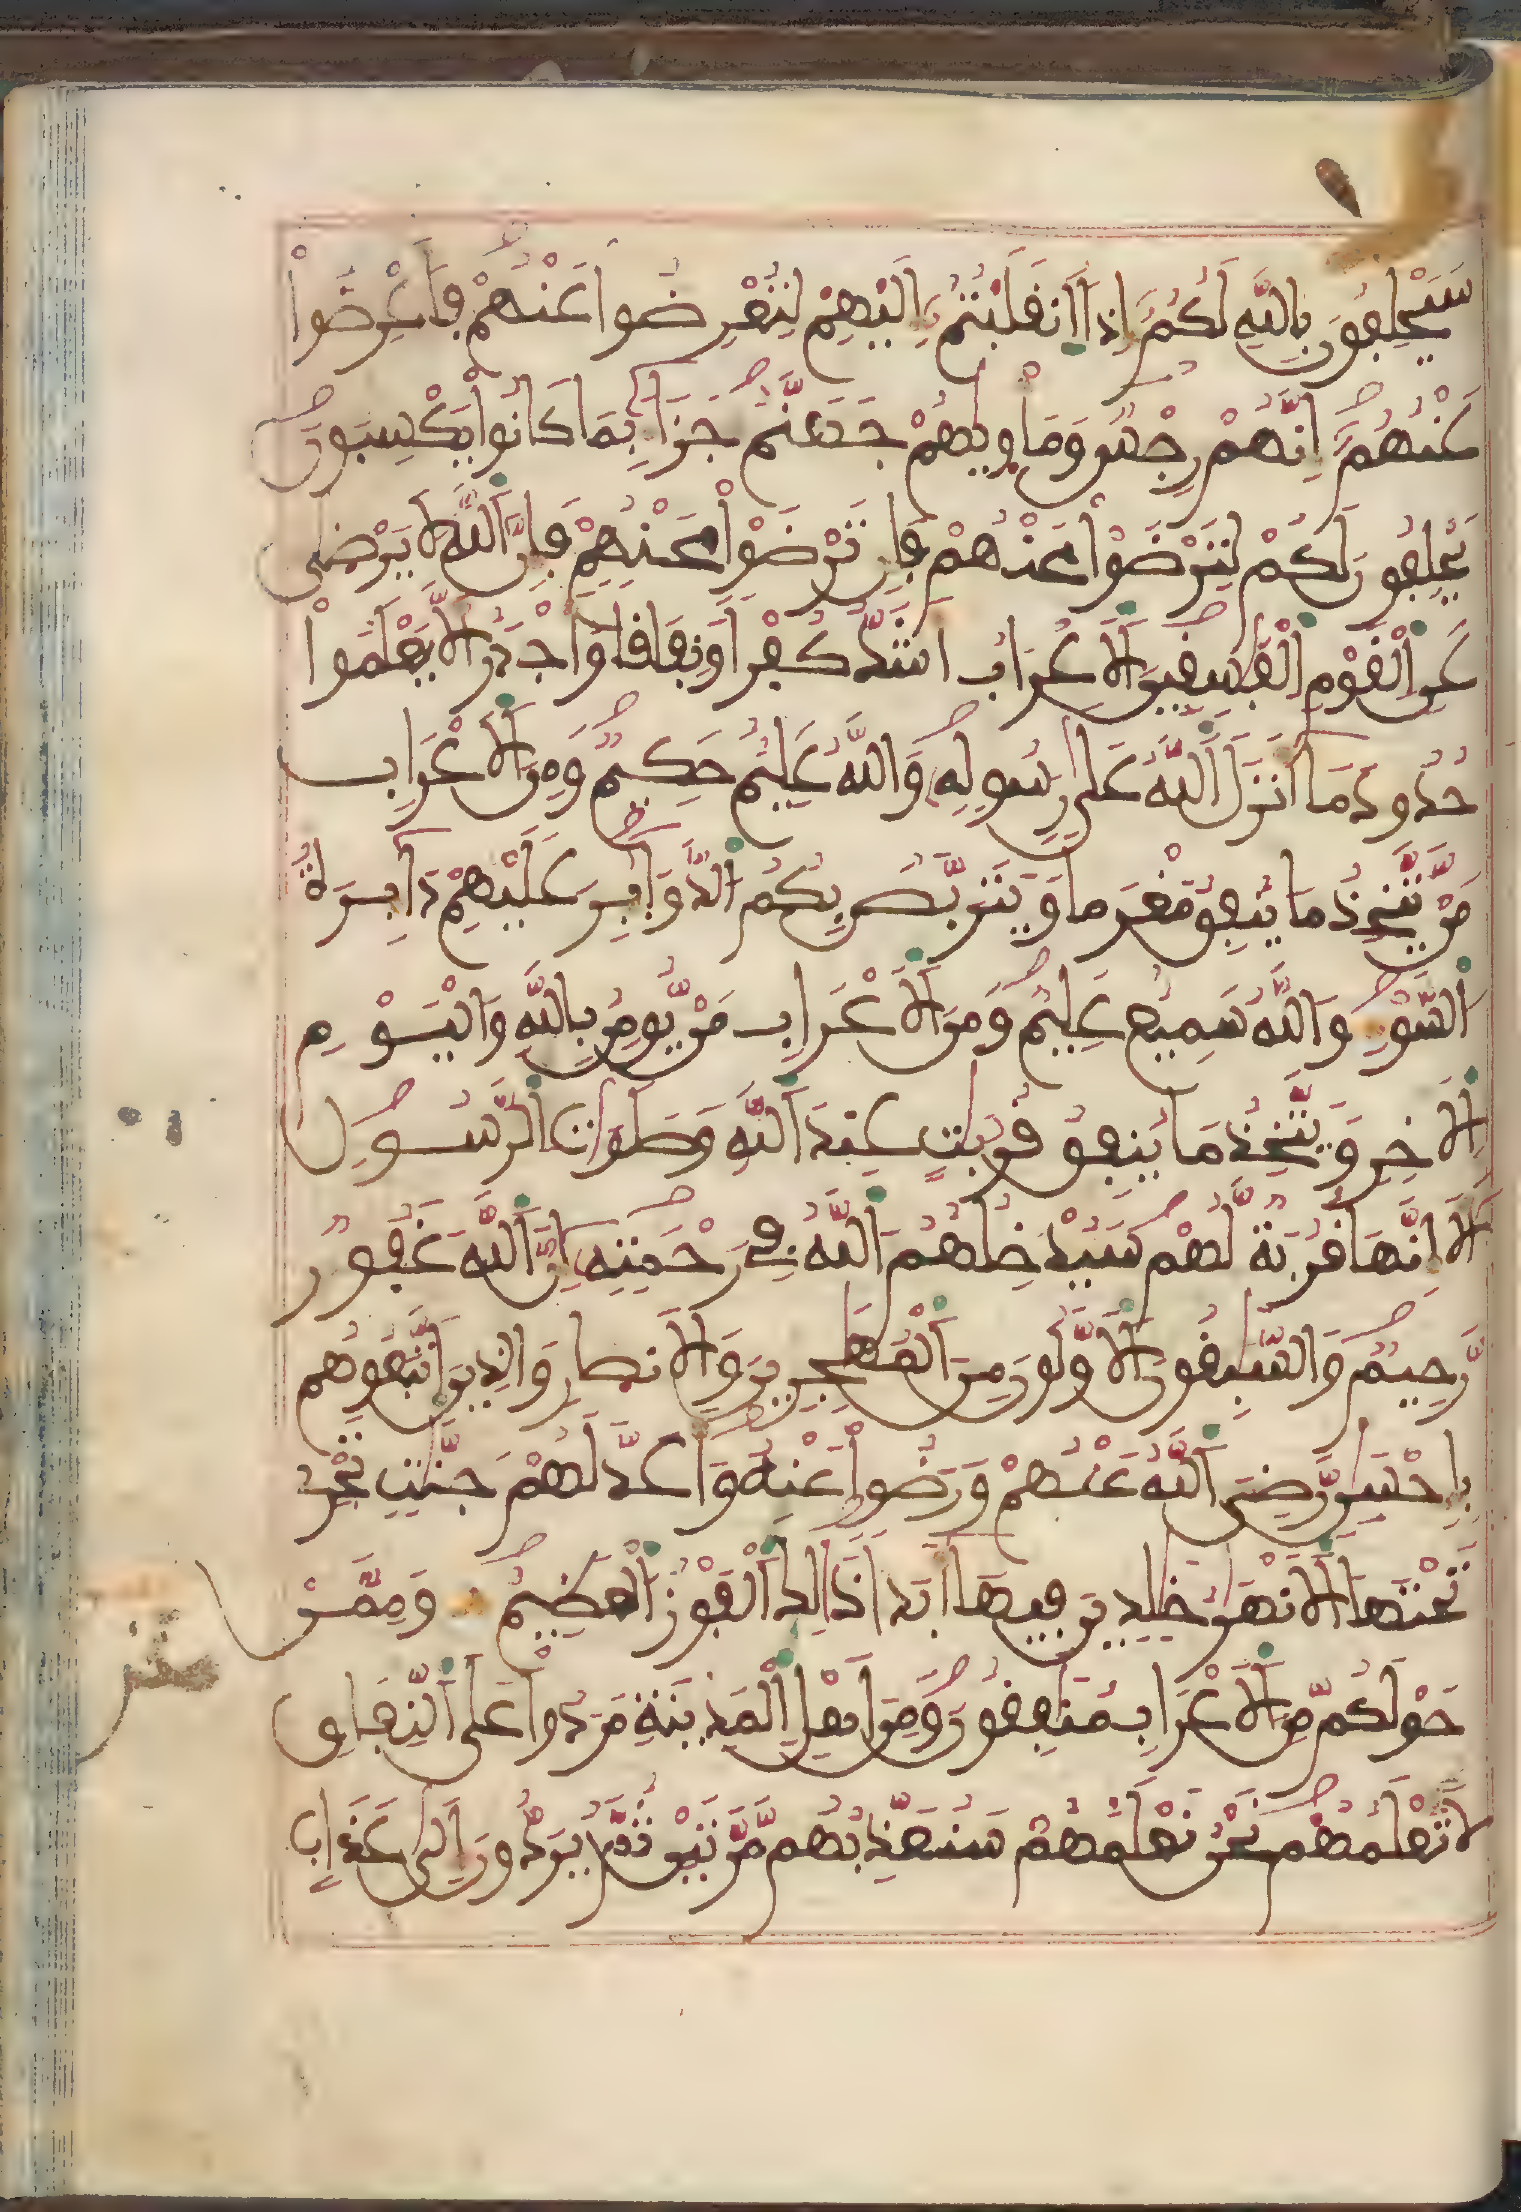 سَيَحْلِفُونَ بِاللَّهِ لَكُمُ إِذَا اَنقَلَبْتُمُ إِلَيْهِمْ لِتُعْرِضُوا عَنْهُمْ فَأَعْرِضُواْ
عَنْهُمُ إِنَّهُمْ رِجْسٌ وَمَأْوِيٰهُمْ جَهَنَّمُ جَزَآءَ بِمَا كَانُواْ يَكْسِبُونَ
يَحْلِفُونَ لَكُمْ لِتَرْضَوْاْ عَنْهُمْ فَإِن تَرْضَوْاْ عَنْهُمْ فَإِنَّ اَللَّهَ لَا يَرْضىٰ
عَنِ اِلْقَوْمِ اِلْفَٰسِقِينَ اَلَاعْرَابُ أَشَدُّ كُفْراً وَنِفَاقاً وَأَجْدَرُ أَلَّا يَعْلَمُواْ
حُدُودَ مَا أَنزَلَ اَللَّهُ عَلَىٰ رَسُولِهِ وَاللَّهُ عَلِيمٌ حَكِيمٌ وَمِنَ اَلَاعْرَابِ
مَنْ يَّتَّخِذُ مَا يُنفِقُ مَغْرَماً وَيَتَرَبَّصُ بِكُمُ اُلدَّوَآئِرَ عَلَيْهِمْ دَآئِرَةُ
اُلسَّوْءِ وَاللَّهُ سَمِيعٌ عَلِيمٌ وَمِنَ اَلَاعْرَابِ مَنْ يُّومِنُ بِاللَّهِ وَالْيَوْمِ
اِلَاخِرِ وَيَتَّخِذُ مَا يُنفِقُ قُرُبَٰتٍ عِندَ اَللَّهِ وَصَلَوَٰتِ اِلرَّسُولِ
أَلَا إِنَّهَا قُرُبَةٌ لَّهُمْ سَيُدْخِلُهُمُ اُللَّهُ فِي رَحْمَتِهِ إِنَّ اَللَّهَ غَفُورٌ
رَّحِيمٌ وَالسَّٰبِقُونَ اَلَاوَّلُونَ مِنَ اَلْمُهَٰجِرِينَ وَالَانصَارِ وَالذِينَ اَتَّبَعُوهُم
بِإِحْسَٰنٍ رَّضِيَ اَللَّهُ عَنْهُمْ وَرَضُواْ عَنْهُ وَأَعَدَّ لَهُمْ جَنَّٰتٍ تَجْرِي
تَحْتَهَا اَلَانْهَٰرُ خَٰلِدِينَ فِيهَا أَبَداً ذَٰلِكَ اَلْفَوْزُ اُلْعَظِيمُ وَمِمَّنْ
حَوْلَكُم مِّنَ اَلَاعْرَابِ مُنَٰفِقُونَ وَمِنَ اَهْلِ اِلْمَدِينَةِ مَرَدُواْ عَلَى اَلنِّفَاقِ
لَا تَعْلَمُهُمْ نَحْنُ نَعْلَمُهُمْ سَنُعَذِّبُهُم مَّرَّتَيْنِ ثُمَّ يُرَدُّونَ إِلَىٰ عَذَابٍ